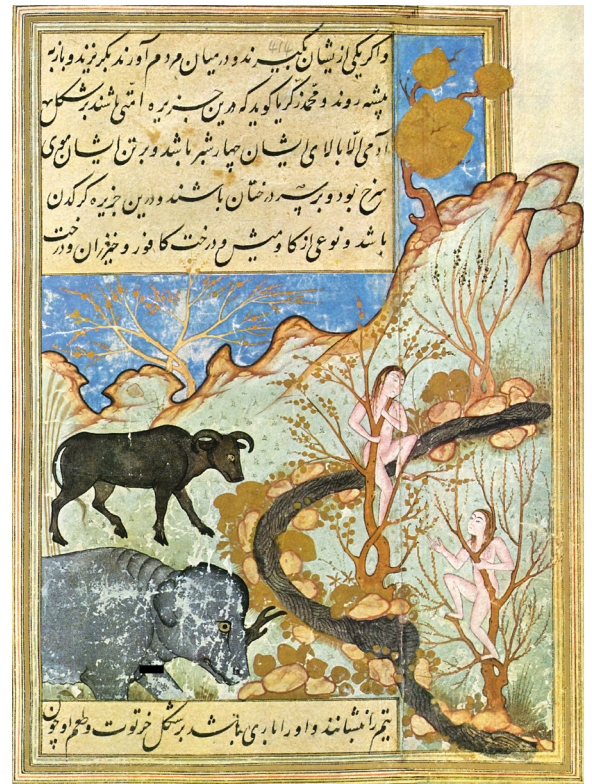 واکر یکی از یشان بکیرند و در میان مردم آورند بکریزند و باز به
میشه روند و محمد زکریا کوید که درین جزیره امتی باشند بر شکل
آدمی الّا بالای ایشان چهار شبر باشد و بر تن ایشان موی
سرخ بود و بر سر درختان باشند و درین جزیره کرکدن
باشد و نوعی از کاومیش و درخت کافور و خیزران و درخت
بقم را بنشانند و او را باری باشد بر شکل خرتوت و طعم او چون